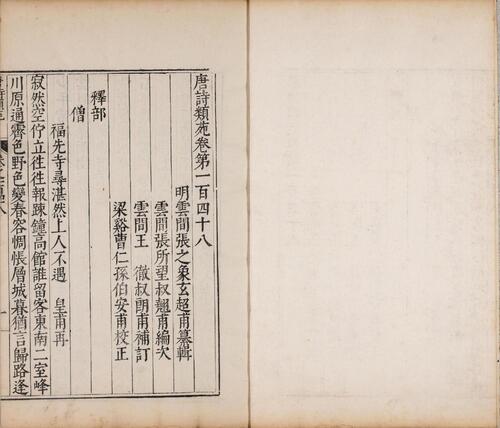 唐詩類苑卷第一百四十八
明雲間張之象玄超甫纂輯
雲間張所望叔翹甫編次
雲間王　徹叔朗甫補訂
梁谿曹仁孫伯安甫校正
釋部
僧
福先寺尋湛然上人不遇　皇甫冉
寂然空佇立往往報疎鐘高館誰留客東南二室峰
川原通霽色野色變春容惆悵層城暮猶言歸路逢